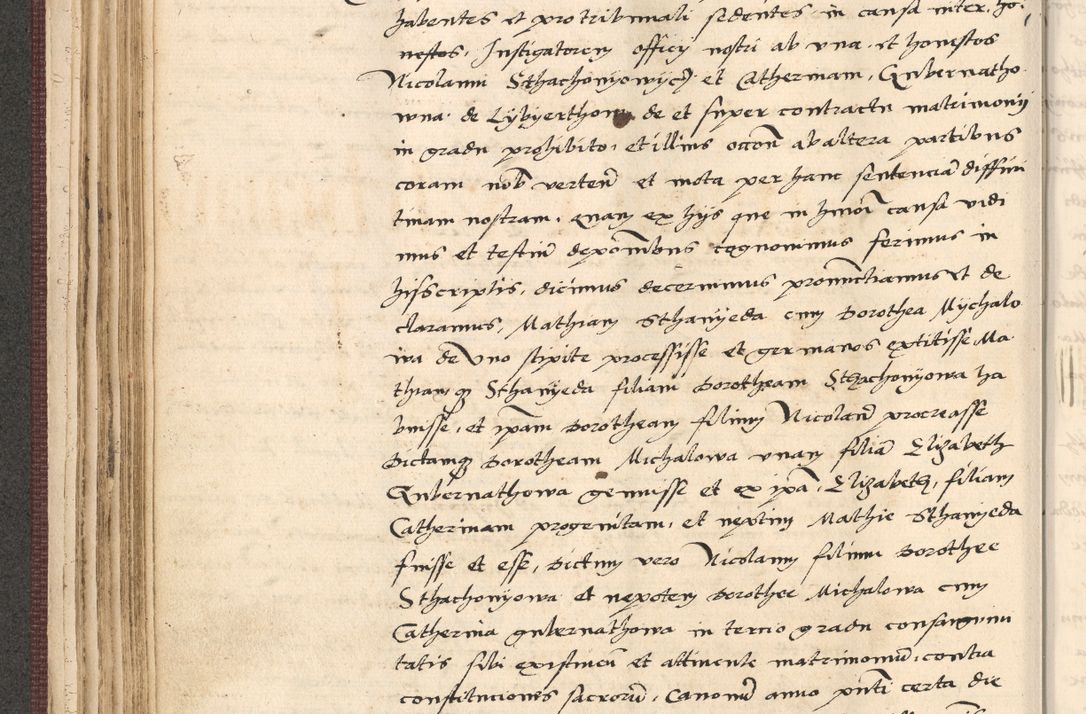 habentes et pro tribunali sedentes in causa inter ho
nestos Instigatorem officij nostri ab vna et honestos
Nicolaum Sthachonyowycz et Catherinam Gubernatho
wna de Lybyerthow de et super contractu matrimonij
in gradu prohibito et illius occoñ ab altera partibus
coram nob verteñ et mota per hanc sentenciã diffini
tiuam nostram, quam ex hijs que in hmoi causa vidi
mus et testiũ deponitbus cognouimus ferimus in
hijsscriptis, dicimus decernimus pronuncciamus et de
claramus, Mathiam Sthanyeda cum Dorothea Mychalo
wa de vno stipite processisse et germanos extitisse Ma
thiamq Sthanyeda filiam Dorotheam Sthachonyowa ha
buisse, et ipam Dorotheam filium Nicolaũ procreasse
Dictamq Dorotheam Michalowa vnam filiã Elizabeth
Gubernathowa genuisse et ex ipa Elizabeth, filiam
Catherinam progenitam, et neptim Mathie Sthanyeda
fuisse et esse, Dictum vero Nicolaum filium Dorothee
Sthachonyowa et nepotem Dorothee Michalowa cum
Catherina gubernathowa in tercio gradu consanguini
tatis sibi existineñ et attinente matrimoniũ, contra
constituciones sacrorũ Canonũ anno pñti certa die